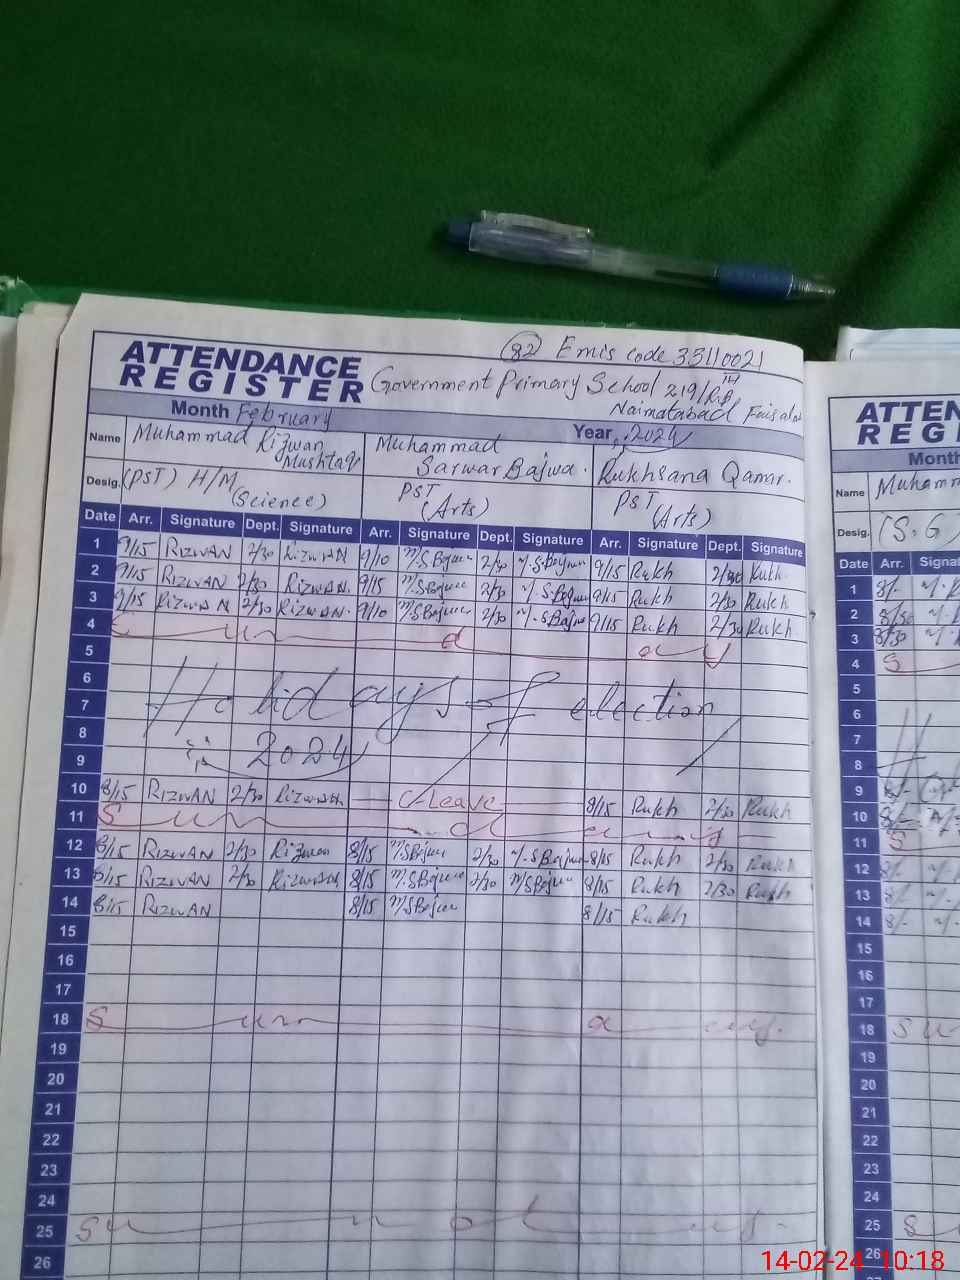 82 Emis code 33110021
ATTENDANCE
REGISTER
Government Primary School 219/R.B
Naimatabad Faisalabad
Month February Year 2024
Name Muhammad Rizwan Mushtaq Muhammad Sarwar Bajwa Rukhsana Qamar
Desig. (PST) H/M (Science) PST (Arts) PST (Arts)
Date Arr. Signature Dept. Signature Arr. Signature Dept. Signature Arr. Signature Dept. Signature
1 9/15 RIZWAN 2/30 RIZWAN 9/10 M.S Bajwa 2/30 M.S Bajwa 9/15 Rukh 2/30 Rukh
2 9/15 RIZWAN 2/30 RIZWAN 9/15 M.S Bajwa 2/30 M.S Bajwa 9/15 Rukh 2/30 Rukh
3 9/15 RIZWAN 2/30 RIZWAN 9/10 M.S Bajwa 2/30 M.S Bajwa 9/15 Rukh 2/30 Rukh
4 Sunday
5
6
7 Holidays of election
8
9 2024
10 8/15 RIZWAN 2/30 RIZWAN C-Leave 8/15 Rukh 2/30 Rukh
11 Sunday
12 8/15 RIZWAN 2/30 Rizwan 8/15 M.S Bajwa 2/30 M.S Bajwa 8/15 Rukh 2/30 Rukh
13 8/15 RIZWAN 2/30 RIZWAN 8/15 M.S Bajwa 2/30 M.S Bajwa 8/15 Rukh 2/30 Rukh
14 8/15 RIZWAN 8/15 M.S Bajwa 8/15 Rukh
15
16
17
18 Sunday
19
20
21
22
23
24
25 Sunday
26
ATTEN
REGI
Month
Name Muhamm
Desig. (S.G)
Date Arr. Signat
1 8/-
2 8/30
3 8/30
4 S
5
6
7
8
9
10
11 S
12 8/-
13 8/-
14 8/-
15
16
17
18 Su
19
20
21
22
23
24
25 S
26
14-02-24 10:18